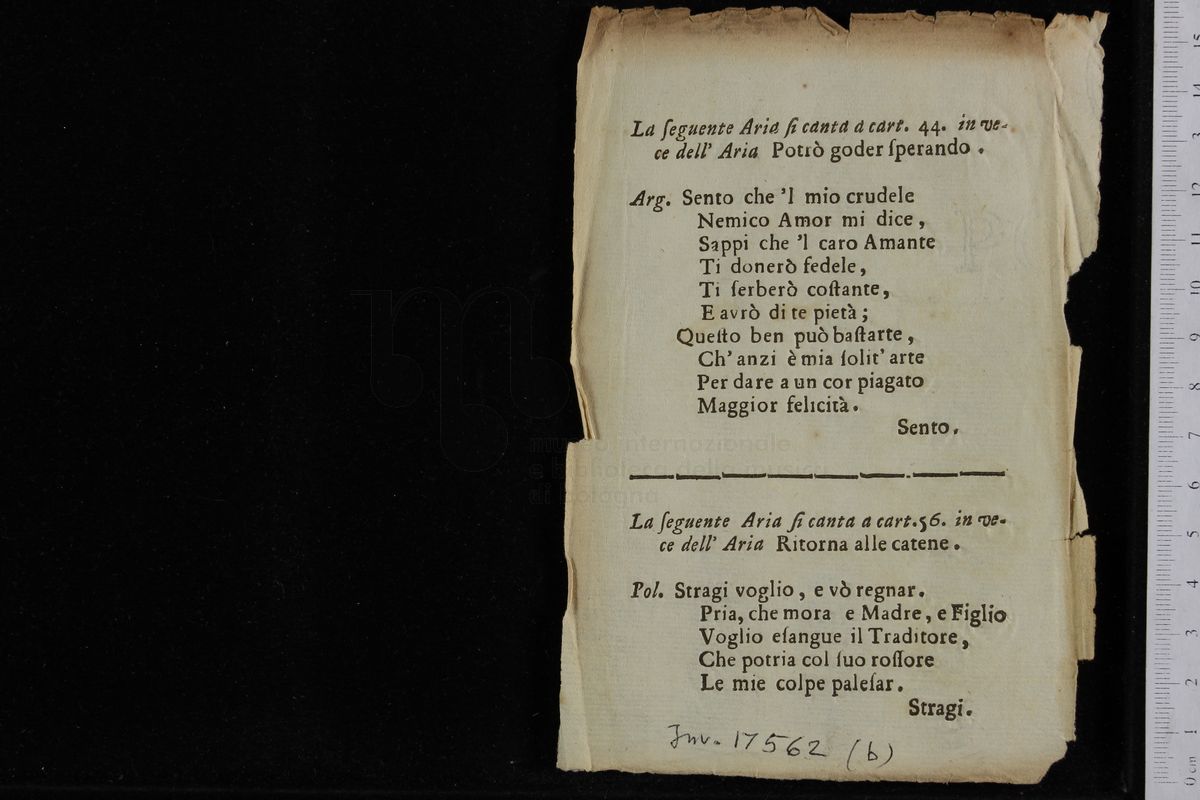 La ſeguente Aria ſi canta a cart. 44. in ve-
ce dell' Aria Potrò goder ſperando.
Arg. Sento che 'l mio crudele
Nemico Amor mi dice,
Sappi che 'l caro Amante
Ti donerò fedele,
Ti ſerberò coſtante,
E avrò di te pietà;
Queſto ben può baſtarte,
Ch' anzi è mia ſolit' arte
Per dare a un cor piagato
Maggior felicità.
Sento.
museo internazionale
e biblioteca della musica
di bologna
La ſeguente Aria ſi canta a cart. 56. in ve-
ce dell' Aria Ritorna alle catene.
Pol. Stragi voglio, e vò regnar.
Pria, che mora e Madre, e Figlio
Voglio eſangue il Traditore,
Che potria col ſuo roſſore
Le mie colpe paleſar.
Stragi.
Inv. 17562 (b)
0 cm 1 2 3 4 5 6 7 8 9 10 11 12 13 14 15